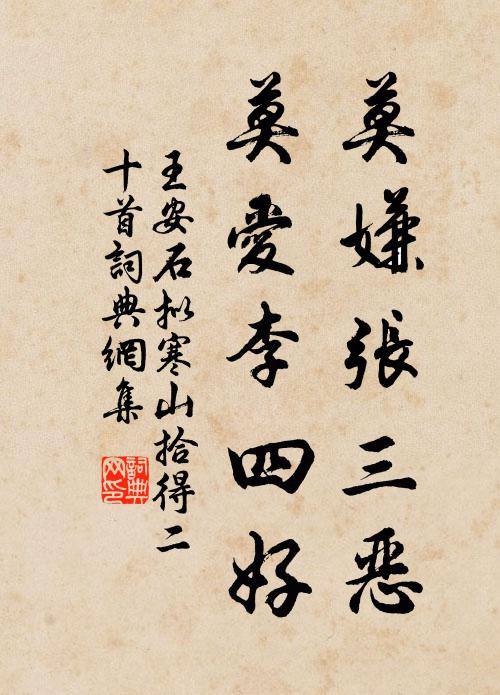 莫嫌張三惡
莫愛李四好
王安石拟寒山拾得二
十首詞典網集
詞典
网印